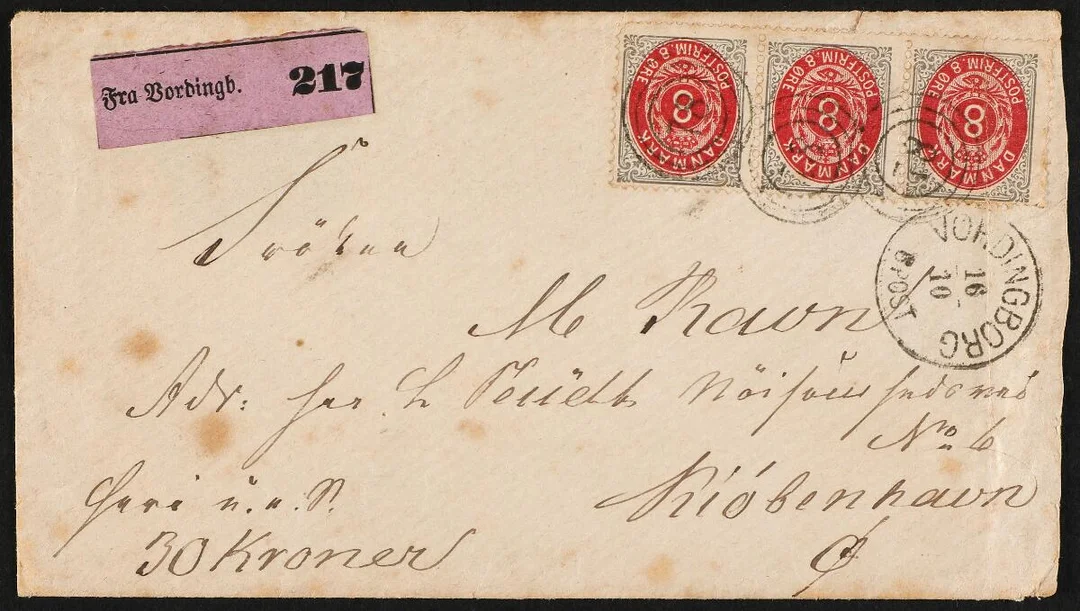 Fra Vordingb. 217
POSTFRIM. 8 ØRE
8
DANMARK
POSTFRIM. 8 ØRE
8
DANMARK
POSTFRIM. 8 ØRE
8
DANMARK
VORDINGBORG
16
10
6 POST
Fröken
M Ravn
Adr: Her L
No 6
Kiöbenhavn
Heri
30 Kroner